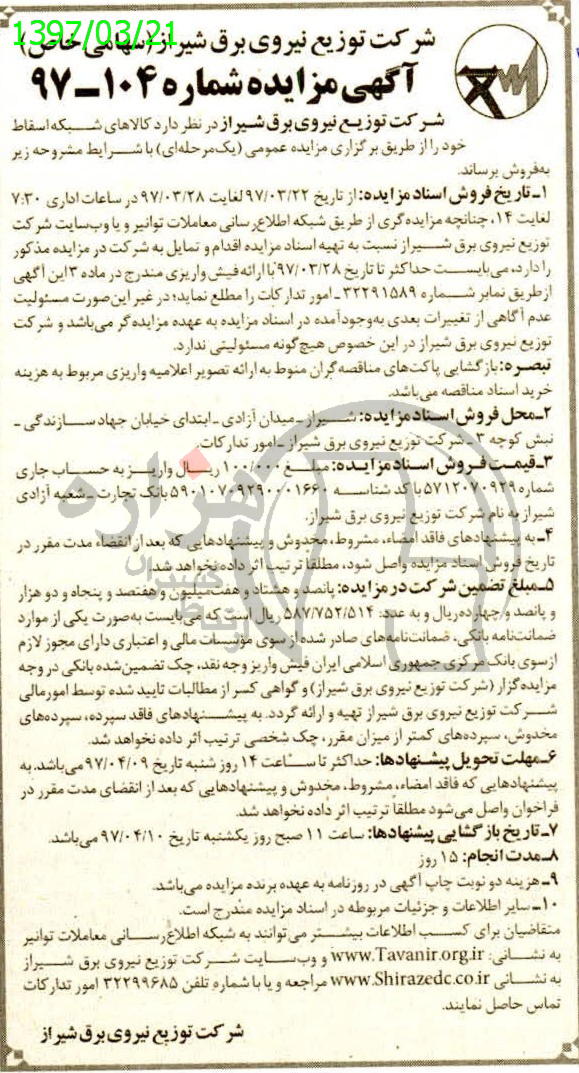 1397/03/21
شرکت توزیع نیروی برق شیراز (سهامی خاص)
آگهی مزایده شماره ۱۰۴-۹۷
شرکت توزیع نیروی برق شیراز در نظر دارد کالاهای شبکه اسقاط
خود را از طریق برگزاری مزایده عمومی (یک‌مرحله‌ای) با شرایط مشروحه زیر
به‌فروش برساند.
۱ـ تاریخ فروش اسناد مزایده: از تاریخ ۹۷/۰۳/۲۲ لغایت ۹۷/۰۳/۲۸ در ساعات اداری ۷:۳۰
لغایت ۱۴، چنانچه مزایده‌گری از طریق شبکه اطلاع‌رسانی معاملات توانیر و یا وب‌سایت شرکت
توزیع نیروی برق شیراز نسبت به تهیه اسناد مزایده اقدام و تمایل به شرکت در مزایده مذکور
را دارد، می‌بایست حداکثر تا تاریخ ۹۷/۰۳/۲۸ با ارائه فیش واریزی مندرج در ماده ۳ این آگهی
از طریق نمابر شماره ۳۲۲۹۱۵۸۹ ـ امور تدارکات را مطلع نماید؛ در غیر این‌صورت مسئولیت
عدم آگاهی از تغییرات بعدی به‌وجودآمده در اسناد مزایده به عهده مزایده‌گر می‌باشد و شرکت
توزیع نیروی برق شیراز در این خصوص هیچ‌گونه مسئولیتی ندارد.
تبصره: بازگشایی پاکت‌های مناقصه‌گران منوط به ارائه تصویر اعلامیه واریزی مربوط به هزینه
خرید اسناد مناقصه می‌باشد.
۲ـ محل فروش اسناد مزایده: شیراز ـ میدان آزادی ـ ابتدای خیابان جهاد سازندگی ـ
نبش کوچه ۳ ـ شرکت توزیع نیروی برق شیراز ـ امور تدارکات.
۳ـ قیمت فروش اسناد مزایده: مبلغ ۱۰۰/۰۰۰ ریال واریز به حساب جاری
شماره ۵۷۱۲۰۷۰۹۲۹ با کد شناسه ۵۹۰۱۰۷۰۹۲۹۰۰۰۱۶۶۰ بانک تجارت ـ شعبه آزادی
شیراز به نام شرکت توزیع نیروی برق شیراز.
۴ـ به پیشنهادهای فاقد امضاء، مشروط، مخدوش و پیشنهادهایی که بعد از انقضاء مدت مقرر در
تاریخ فروش اسناد مزایده واصل شود، مطلقاً ترتیب اثر داده نخواهد شد.
۵ـ مبلغ تضمین شرکت در مزایده: پانصد و هشتاد و هفت‌میلیون و هفتصد و پنجاه و دو هزار
و پانصد و چهارده ریال و به عدد: ۵۸۷/۷۵۲/۵۱۴ ریال است که می‌بایست به‌صورت یکی از موارد
ضمانت‌نامه بانکی، ضمانت‌نامه‌های صادر شده از سوی مؤسسات مالی و اعتباری دارای مجوز لازم
از سوی بانک مرکزی جمهوری اسلامی ایران فیش واریز وجه نقد، چک تضمین‌شده بانکی در وجه
مزایده‌گزار (شرکت توزیع نیروی برق شیراز) و گواهی کسر از مطالبات تایید شده توسط امورمالی
شرکت توزیع نیروی برق شیراز تهیه و ارائه گردد. به پیشنهادهای فاقد سپرده، سپرده‌های
مخدوش، سپرده‌های کمتر از میزان مقرر، چک شخصی ترتیب اثر داده نخواهد شد.
۶ـ مهلت تحویل پیشنهادها: حداکثر تا ساعت ۱۴ روز شنبه تاریخ ۹۷/۰۴/۰۹ می‌باشد. به
پیشنهادهایی که فاقد امضاء، مشروط، مخدوش و پیشنهادهایی که بعد از انقضای مدت مقرر در
فراخوان واصل می‌شود مطلقاً ترتیب اثر داده نخواهد شد.
۷ـ تاریخ بازگشایی پیشنهادها: ساعت ۱۱ صبح روز یکشنبه تاریخ ۹۷/۰۴/۱۰ می‌باشد.
۸ـ مدت انجام: ۱۵ روز
۹ـ هزینه دو نوبت چاپ آگهی در روزنامه به عهده برنده مزایده می‌باشد.
۱۰ـ سایر اطلاعات و جزئیات مربوطه در اسناد مزایده مندرج است.
متقاضیان برای کسب اطلاعات بیشتر می‌توانند به شبکه اطلاع‌رسانی معاملات توانیر
به نشانی: www.Tavanir.org.ir و وب‌سایت شرکت توزیع نیروی برق شیراز
به نشانی www.Shirazedc.co.ir مراجعه و یا با شماره تلفن ۳۲۲۹۹۶۸۵ امور تدارکات
تماس حاصل نمایند.
شرکت توزیع نیروی برق شیراز